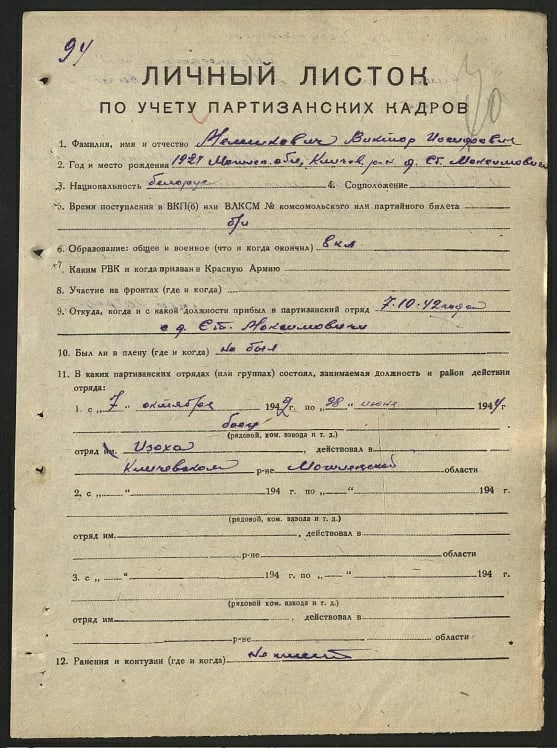 94
ЛИЧНЫЙ ЛИСТОК
ПО УЧЕТУ ПАРТИЗАНСКИХ КАДРОВ
1. Фамилия, имя и отчество Виктор Иосифович
2. Год и место рождения Могилев. обл, Кличев. р-н д. Ст. Максимовичи
3. Национальность белорус 4. Соцположение
5. Время поступления в ВКП(б) или ВЛКСМ № комсомольского или партийного билета
б/п
6. Образование: общее и военное (что и когда окончил) 8 кл
7. Каким РВК и когда призван в Красную Армию
8. Участие на фронтах (где и когда)
9. Откуда, когда и с какой должности прибыл в партизанский отряд 7.10.42 года
с д. Ст. Максимовичи
10. Был ли в плену (где и когда) не был
11. В каких партизанских отрядах (или группах) состоял, занимаемая должность и район действия
отряда:
1. с „7“ октября 1942 г. по „28“ июня 1944 г.
боец
(рядовой, ком. взвода и т. д.)
отряд им. Изоха, действовал в
Кличевском р-не Могилевской области
2. с „ “ 194 г. по „ “ 194 г.
(рядовой, ком. взвода и т. д.)
отряд им. , действовал в
р-не области
3. с „ “ 194 г. по „ “ 194 г.
(рядовой, ком. взвода и т. д.)
отряд им. , действовал в
р-не области
12. Ранения и контузии (где и когда) не имеет